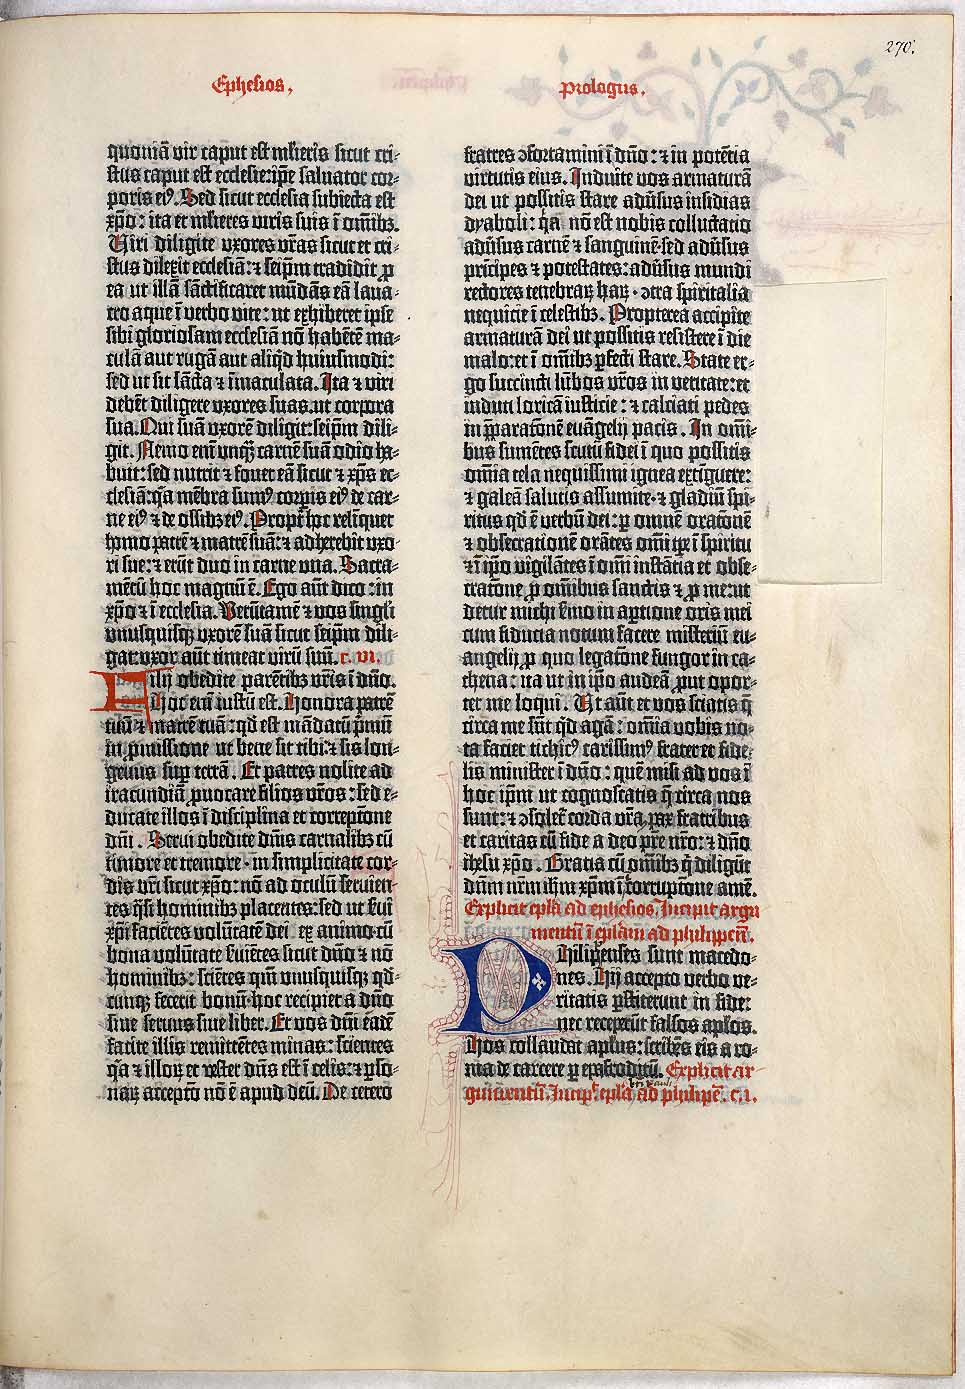 270.
Ephesios,
Prologus.
quoniā vir caput est mlieris sicut cri-
stus caput est ecclesie: ip̄e saluator cor-
poris ei9. Sed sicut ecclesia subiecta est
xp̄o: ita et mlieres viris suis ī omībꝫ.
Viri diligite vxores vr̄as sicut et cri-
stus dilexit ecclesiā: ⁊ seip̄m tradidit ꝓ
ea ut illā sāctificaret mūdās eā laua-
cro aque ī verbo vite: ut exhiberet ipse
sibi gloriosam ecclesiā nō habētē ma-
culā aut rugā aut aliqͥd huiusmodi:
sed ut sit sācta ⁊ īmaculata. Ita ⁊ viri
debēt diligere vxores suas. ut corpora
sua. Qui suā vxorē diligit: seip̄m dili-
git. Nemo enī vnqꝫ carnē suā odio ha-
buit: sed nutrit ⁊ fouet eā sicut ⁊ xp̄s ec-
clesiā: qa mēbra sum9 corꝑis ei9 de car-
ne ei9 ⁊ de ossibꝫ ei9. Propt̄ hoc relīquet
homo patrē ⁊ matrē suā: ⁊ adherebit vxo-
ri sue: ⁊ erūt duo in carne vna. Sacra-
mētū hoc magnū ē. Ego aūt dico: in
xp̄o ⁊ ī ecclesia. Verūtamē ⁊ vos singli
vnusquisqꝫ vxorē suā sicut seip̄m dili-
gat: vxor aūt timeat virū suū. c. vi.
Filij obedite parētibꝫ vr̄is ī dn̄o.
Hoc enī iustū est. Honora patrē
tuū ⁊ matrē tuā: qd̄ est mādatū p̄mū
in ꝓmissione ut bene sit tibi: ⁊ sis lon-
geuus suꝑ terrā. Et patres nolite ad
iracundiā ꝓuocare filios vr̄os: sed e-
ducate illos ī disciplina et correptōne
dn̄i. Serui obedite dn̄is carnalibꝫ cū
timore et tremore. in simplicitate cor-
dis vr̄i sicut xp̄o: nō ad oculū seruien-
tes qͣsi hominibꝫ placentes: sed ut s̄ui
xp̄i faciētes volūtatē dei ex animo. cū
bona volūtate s̄uiētes sicut dn̄o ⁊ nō
hominibꝫ: sciētes qm̄ vnusquisqꝫ qd̄-
cunqꝫ fecerit bonū. hoc recipiet a dn̄o
siue seruus siue liber. Et vos dn̄i eadē
facite illis remittētes minas: scientes
qa ⁊ illoꝝ et vester dn̄s est ī celis: ⁊ ꝑso-
naꝝ accepto nō ē apud deū. De cetero
fratres ↄfortamini ī dn̄o: ⁊ in potētia
virtutis eius. Induite vos armaturā
dei ut possitis stare adu̾sus insidias
dyaboli: qa nō est nobis colluctatio
adu̾sus carnē ⁊ sanguinē. sed adu̾sus
prīcipes ⁊ potestates: adu̾sus mundi
rectores tenebraꝝ haꝝ. ↄtra spiritalia
nequicie ī celestibꝫ. Propterea accipite
armaturā dei ut possitis resistere ī die
malo: et ī omībꝫ ꝑfecti stare. State er-
go succincti lūbos vr̄os in veritate: et
induti loricā iusticie: ⁊ calciati pedes
in p̄paratōne euāgelij pacis. In omī-
bus sumētes scutū fidei ī quo possitis
omīa tela nequissimi ignea extīguere:
⁊ galeā salutis assumite. ⁊ gladiū spi-
ritus qd̄ ē verbū dei: ꝑ omnē oratōnē
⁊ obsecrationē orātes omī tꝑe ī spiritu
⁊ ī ip̄o vigilātes ī omī instātia et obse-
cratōne ꝓ omnibus sanctis ⁊ ꝓ me: ut
detur michi s̄mo in aꝑtione oris mei
cum fiducia notum facere misteriū eu-
angelij ꝓ quo legatōne fungor in ca-
thena: ita ut in ip̄o audeā ꝓut opor-
tet me loqui. Ut aūt et vos sciatis q̄
circa me sūt qͥd agā: omīa vobis no-
ta faciet tichic9 carissim9 frater et fide-
lis minister ī dn̄o: quē misi ad vos ī
hoc ip̄m ut cognoscatis q̄ circa nos
sunt: ⁊ ↄsolet̄ corda vr̄a. pax fratribus
et caritas cū fide a deo pr̄e nr̄o: ⁊ dn̄o
ihesu xp̄o. Gratia cū omībꝫ qͥ diligūt
dn̄m nr̄m ihm̄ xp̄m ī īcorruptōne amē.
Explicit epl̄a ad ephesios. Incipit argu
mentū ī epl̄am ad philippeñ.
Philippenses sunt macedo-
nes. Hij accepto verbo ve-
ritatis ꝑstiterunt in fide:
nec receperūt falsos aplōs.
Hos collaudat aplūs: scribēs eis a ro-
ma de carcere ꝑ epafroditū. Explicit ar-
bti pauli
gumentū. Incipͭ epl̄a ad philipē. c. i.